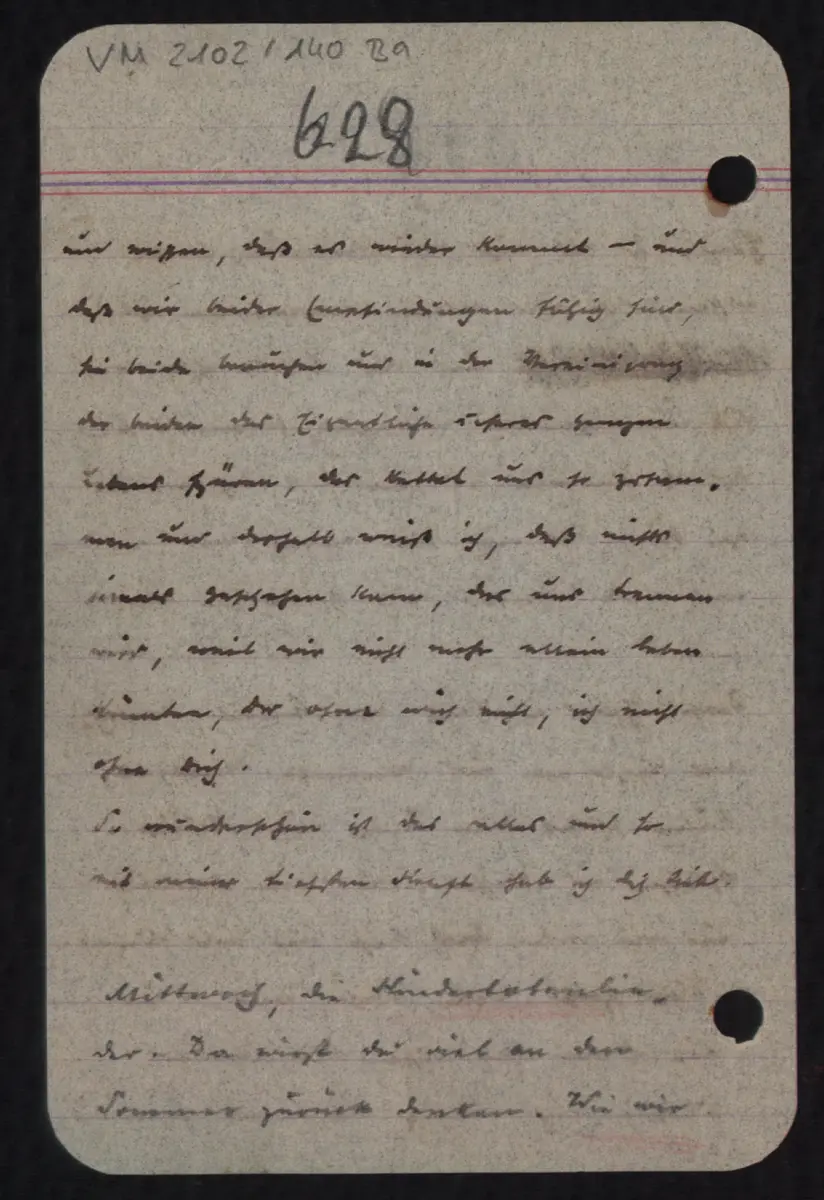 VM 2102 / 140 Ba
628
und wissen, daß es wieder kommt – und
daß wir beider Empfindungen fähig sind,
sie beide brauchen und in der Vereinigung
der beiden das Eigentliche unseres ganzen
Lebens spüren, das kettet uns so zusam-
men und deshalb weiß ich, daß nichts
jemals geschehen kann, das uns trennen
wird, weil wir nicht mehr allein leben
könnten, Du ohne mich nicht, ich nicht
ohne Dich.
So wunderschön ist das alles und so
mit meiner tiefsten Kraft hab ich Dich lieb.
Mittwoch, die Kindertotenlie-
der. Da wirst du viel an den
Sommer zurück denken. Wie wir